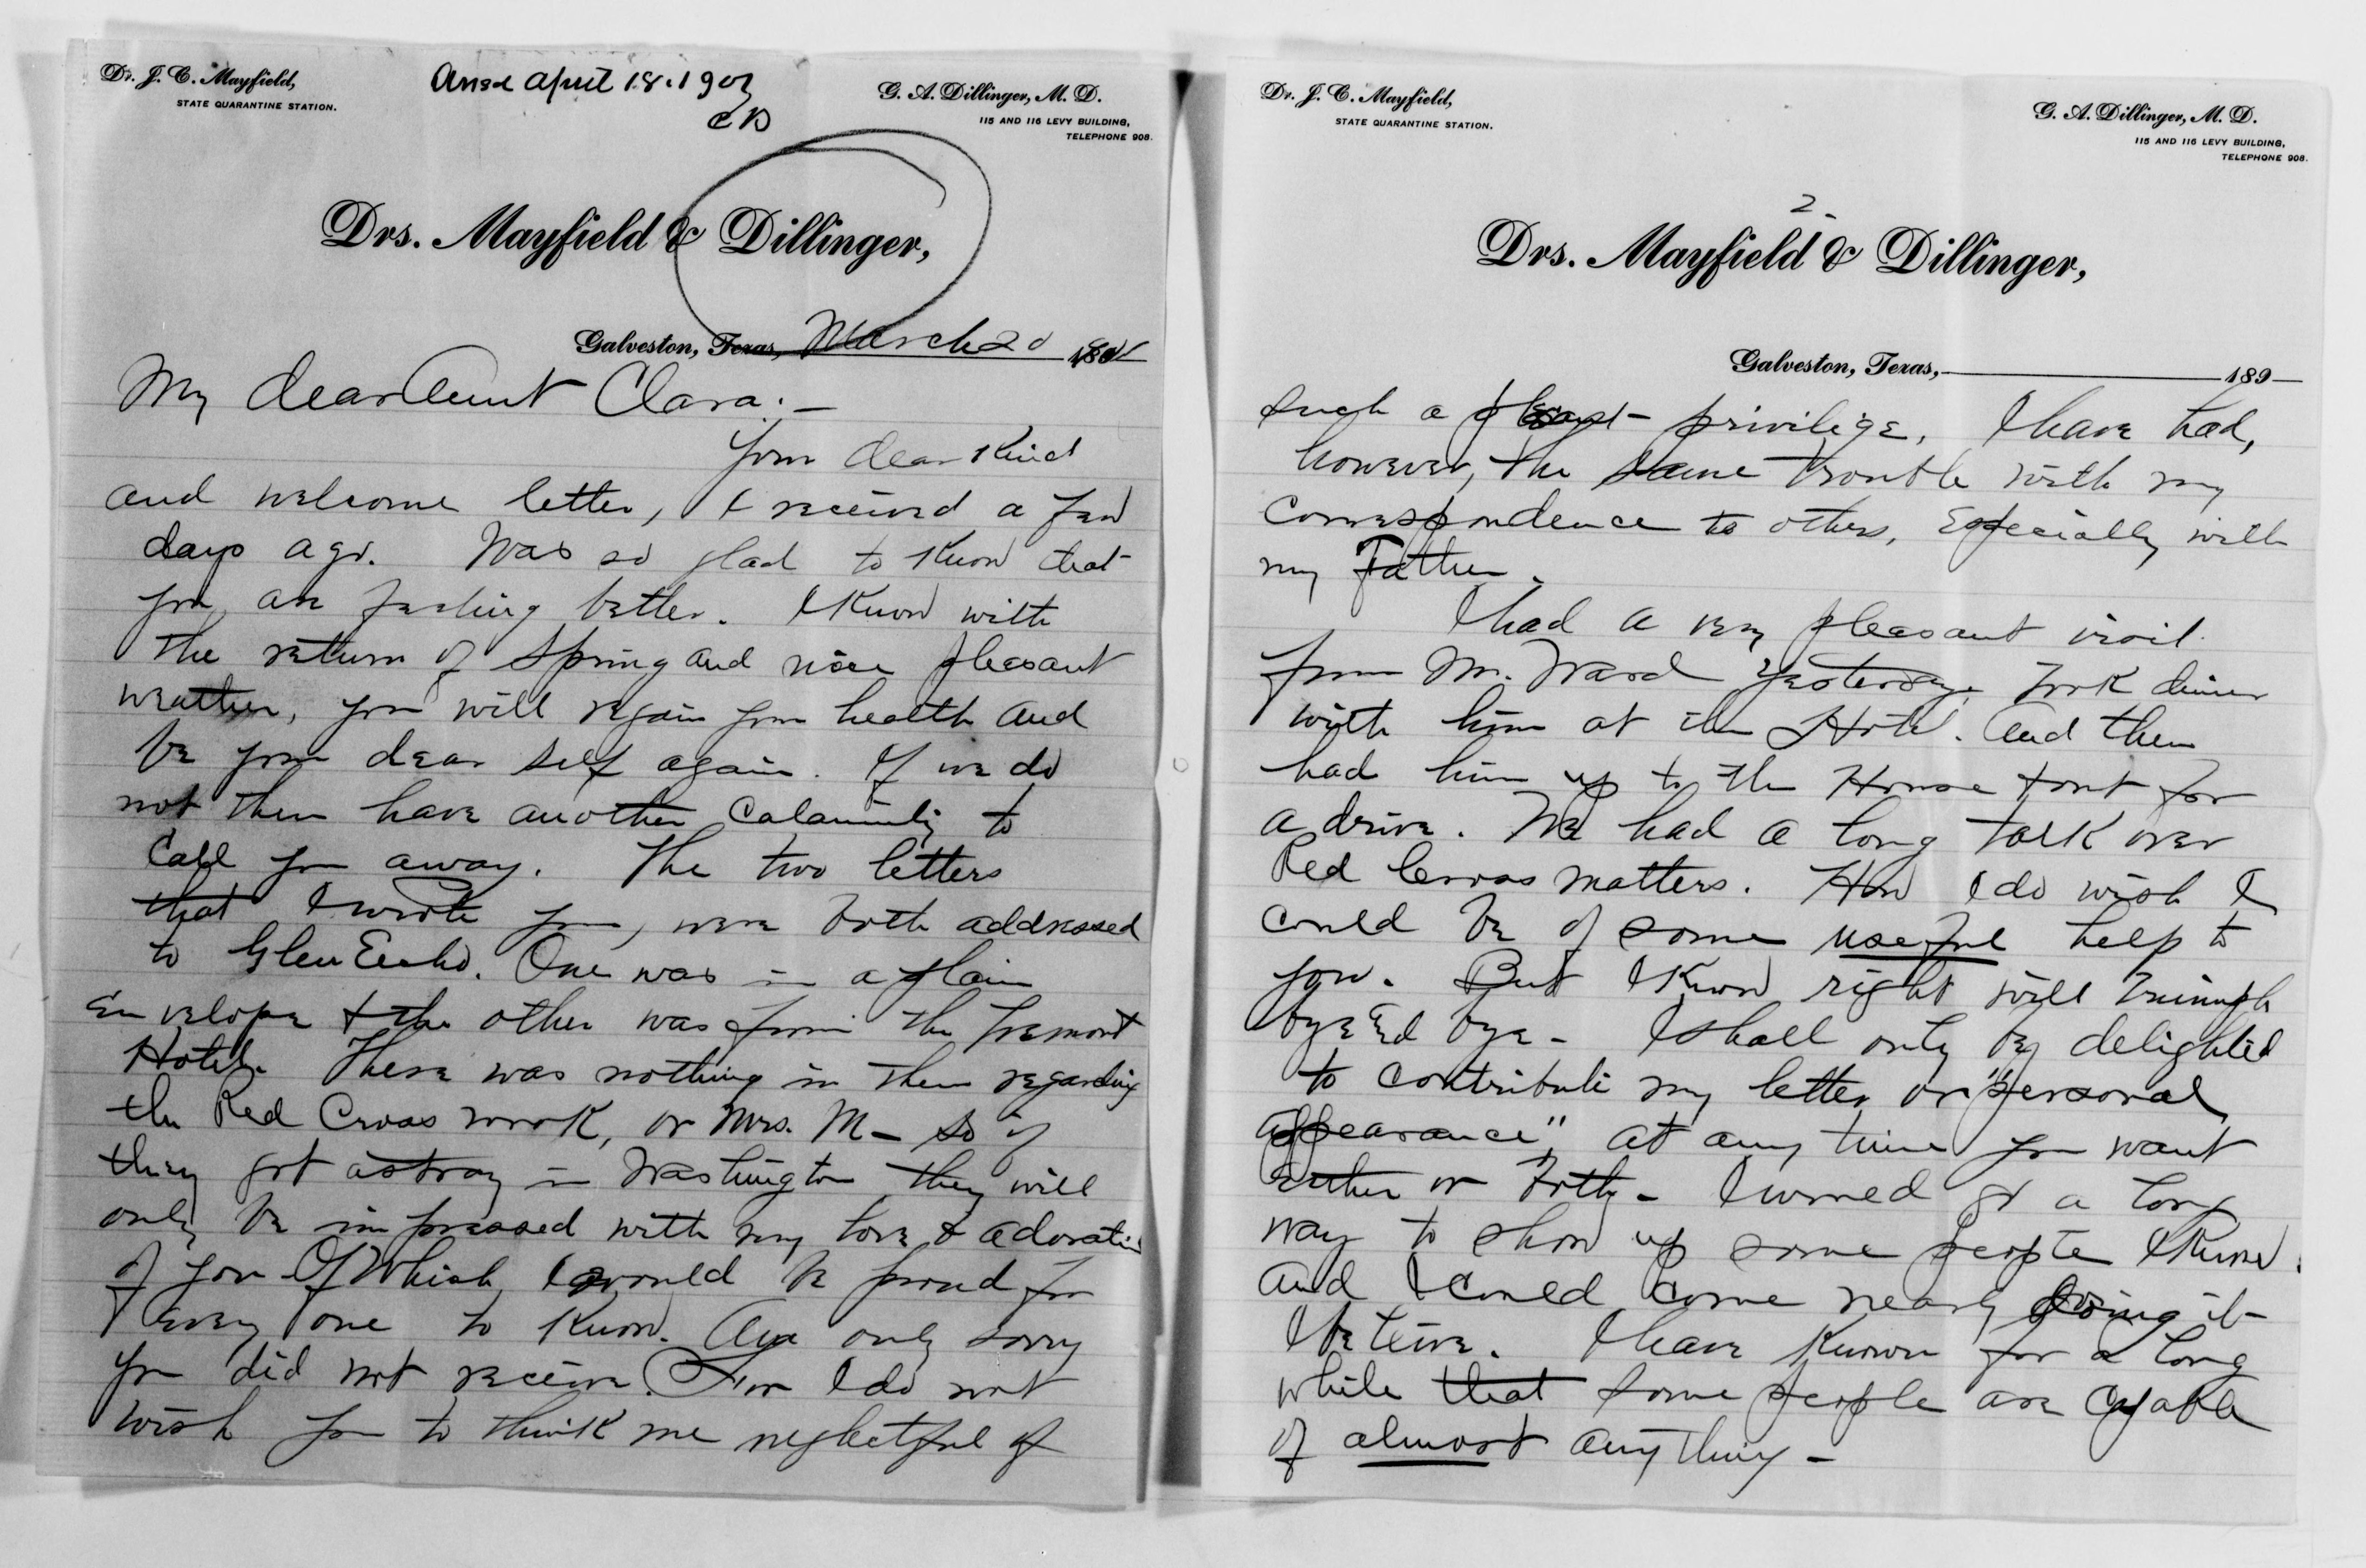 Dr. J. C. Mayfield,
STATE QUARANTINE STATION.
Ansd April 18. 1901
CB
G. A. Dillinger, M. D.
115 AND 116 LEVY BUILDING,
TELEPHONE 908.
Drs. Mayfield & Dillinger,
Galveston, Texas, March 20 1901
My dear Aunt Clara:—
Your dear Kind
and welcome letter, I received a few
days ago. Was so glad to Know that
you are feeling better. I Know with
the return of Spring and nice pleasant
weather, you will regain your health and
be your dear self again. If we do
not then have another Calamity to
Call you away. The two letters
that I wrote you, were both addressed
to Glen Echo. One was in a plain
Envelope & the other was from the Tremont
Hotel. There was nothing in them regarding
the Red Cross work, or Mrs. M— So if
they got astray in Washington they will
only be impressed with my love & adoration
of you Of Which, I would be proud for
every one to Know. Am only sorry
you did not receive. For I do not
wish you to think me neglectful of
Dr. J. C. Mayfield,
STATE QUARANTINE STATION.
G. A. Dillinger, M. D.
115 AND 116 LEVY BUILDING,
TELEPHONE 908.
2
Drs. Mayfield & Dillinger,
Galveston, Texas, 189
such a privilige. I have had,
however, the same trouble with my
Correspondence to others, Especially with
my Father.
I had a very pleasant visit
from Mr. Ward Yesterday. Took dinner
with him at the Hotel. And then
had him up to the House & out for
a drive. We had a long talk over
Red Cross matters. How I do wish I
could be of some useful help to
you. But I Know right will triumph
bye & bye — I shall only be delighted
to contribute my letter or "personal
appearance", at any time you want
Either or both — I would go a long
way to show up some people I Know.
And I could come nearly doing it
I believe. I have Known for a long
while that some people are capable
of almost anything —